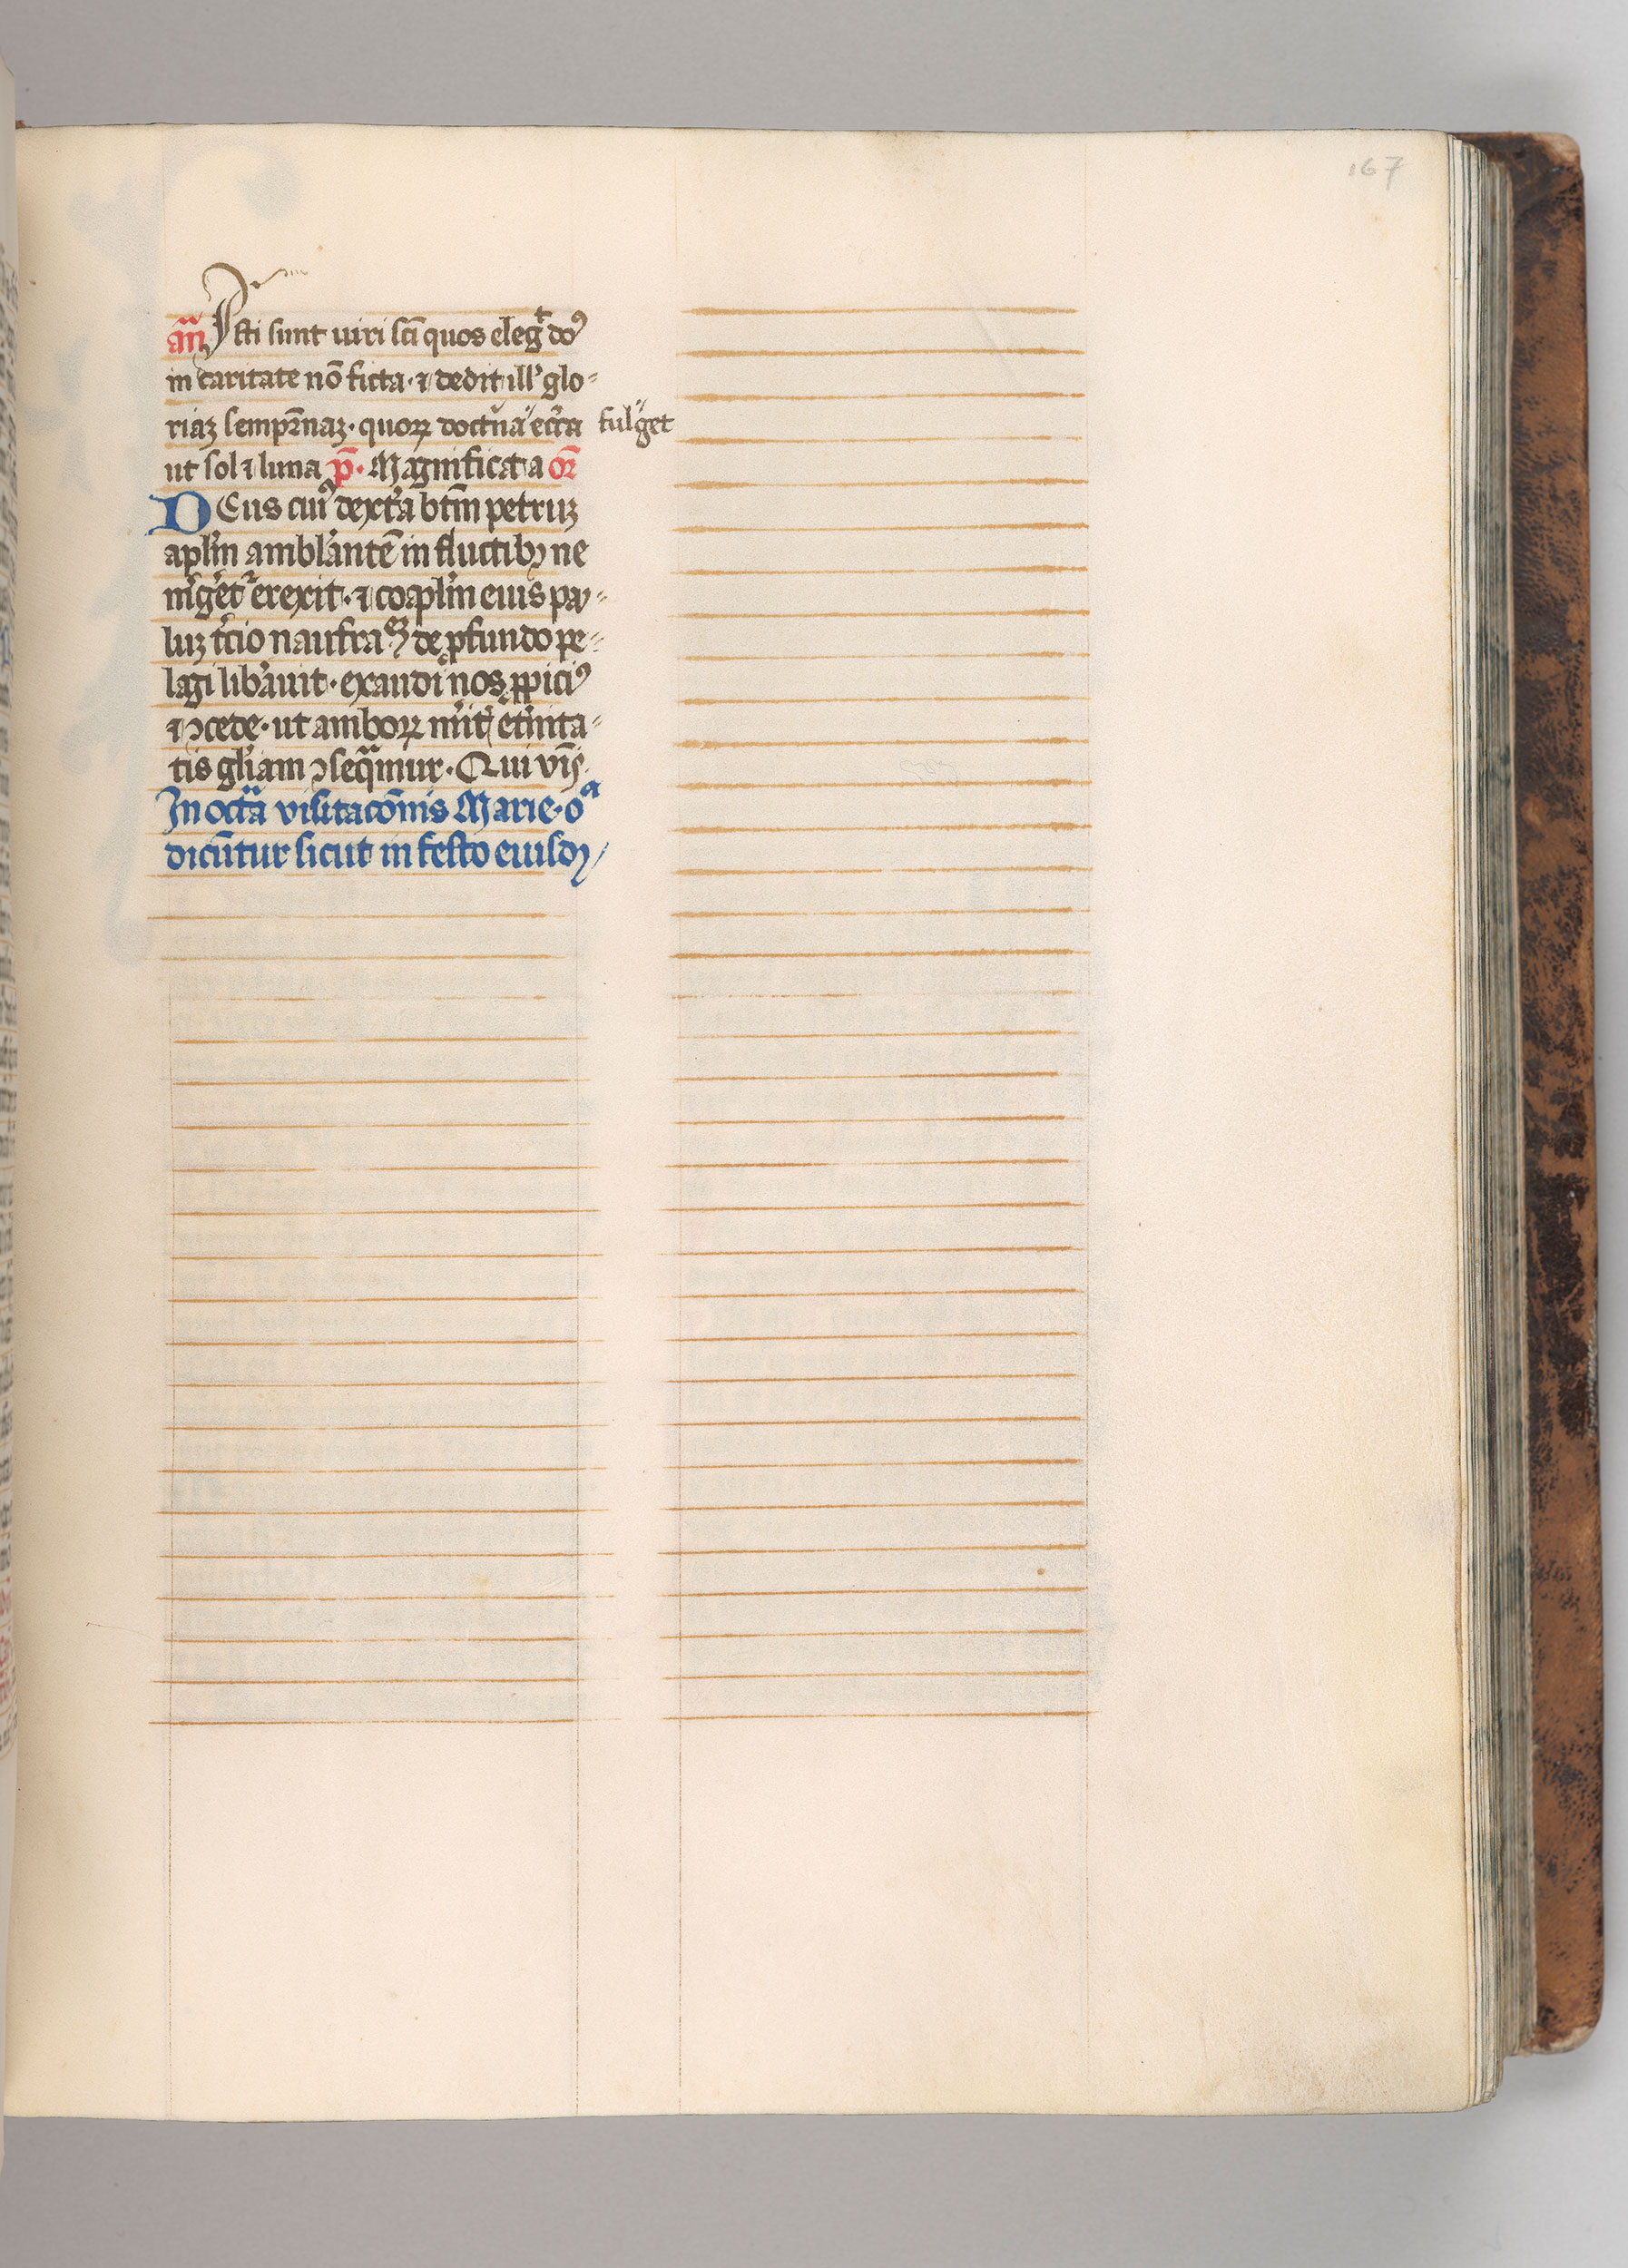 167
an̄ Isti sunt uiri sc̄i quos elegͭ do᷒
in caritate nō ficta · ⁊ dedit ill' glo⸗
riaꝫ semp̄rnaꝫ · quoꝝ doctͥna" ecc̄a "fulget
ut sol ⁊ luna p̄ · Magnificat a or̄
DEus cuiꝰ dext̾a btm̄ petruꝫ
aplm̄ amblantē in fluctibꝫ ne
m̾get᷑ erexit · ⁊ coaplm̄ eius pau⸗
luꝫ t̾cio naufragātē de ꝓfundo pe⸗
lagi lib̾auit · exaudi nos ꝓpiciꝰ
⁊ ꝯcede · ut amboꝝ m̾itꝭ et̾nita⸗
tis gl̄iam ꝯseqͣmur · Qui viuis
In octͣa visitacōnis Marie · oᷓ
dicūtur sicut in festo eiusdꝫ /